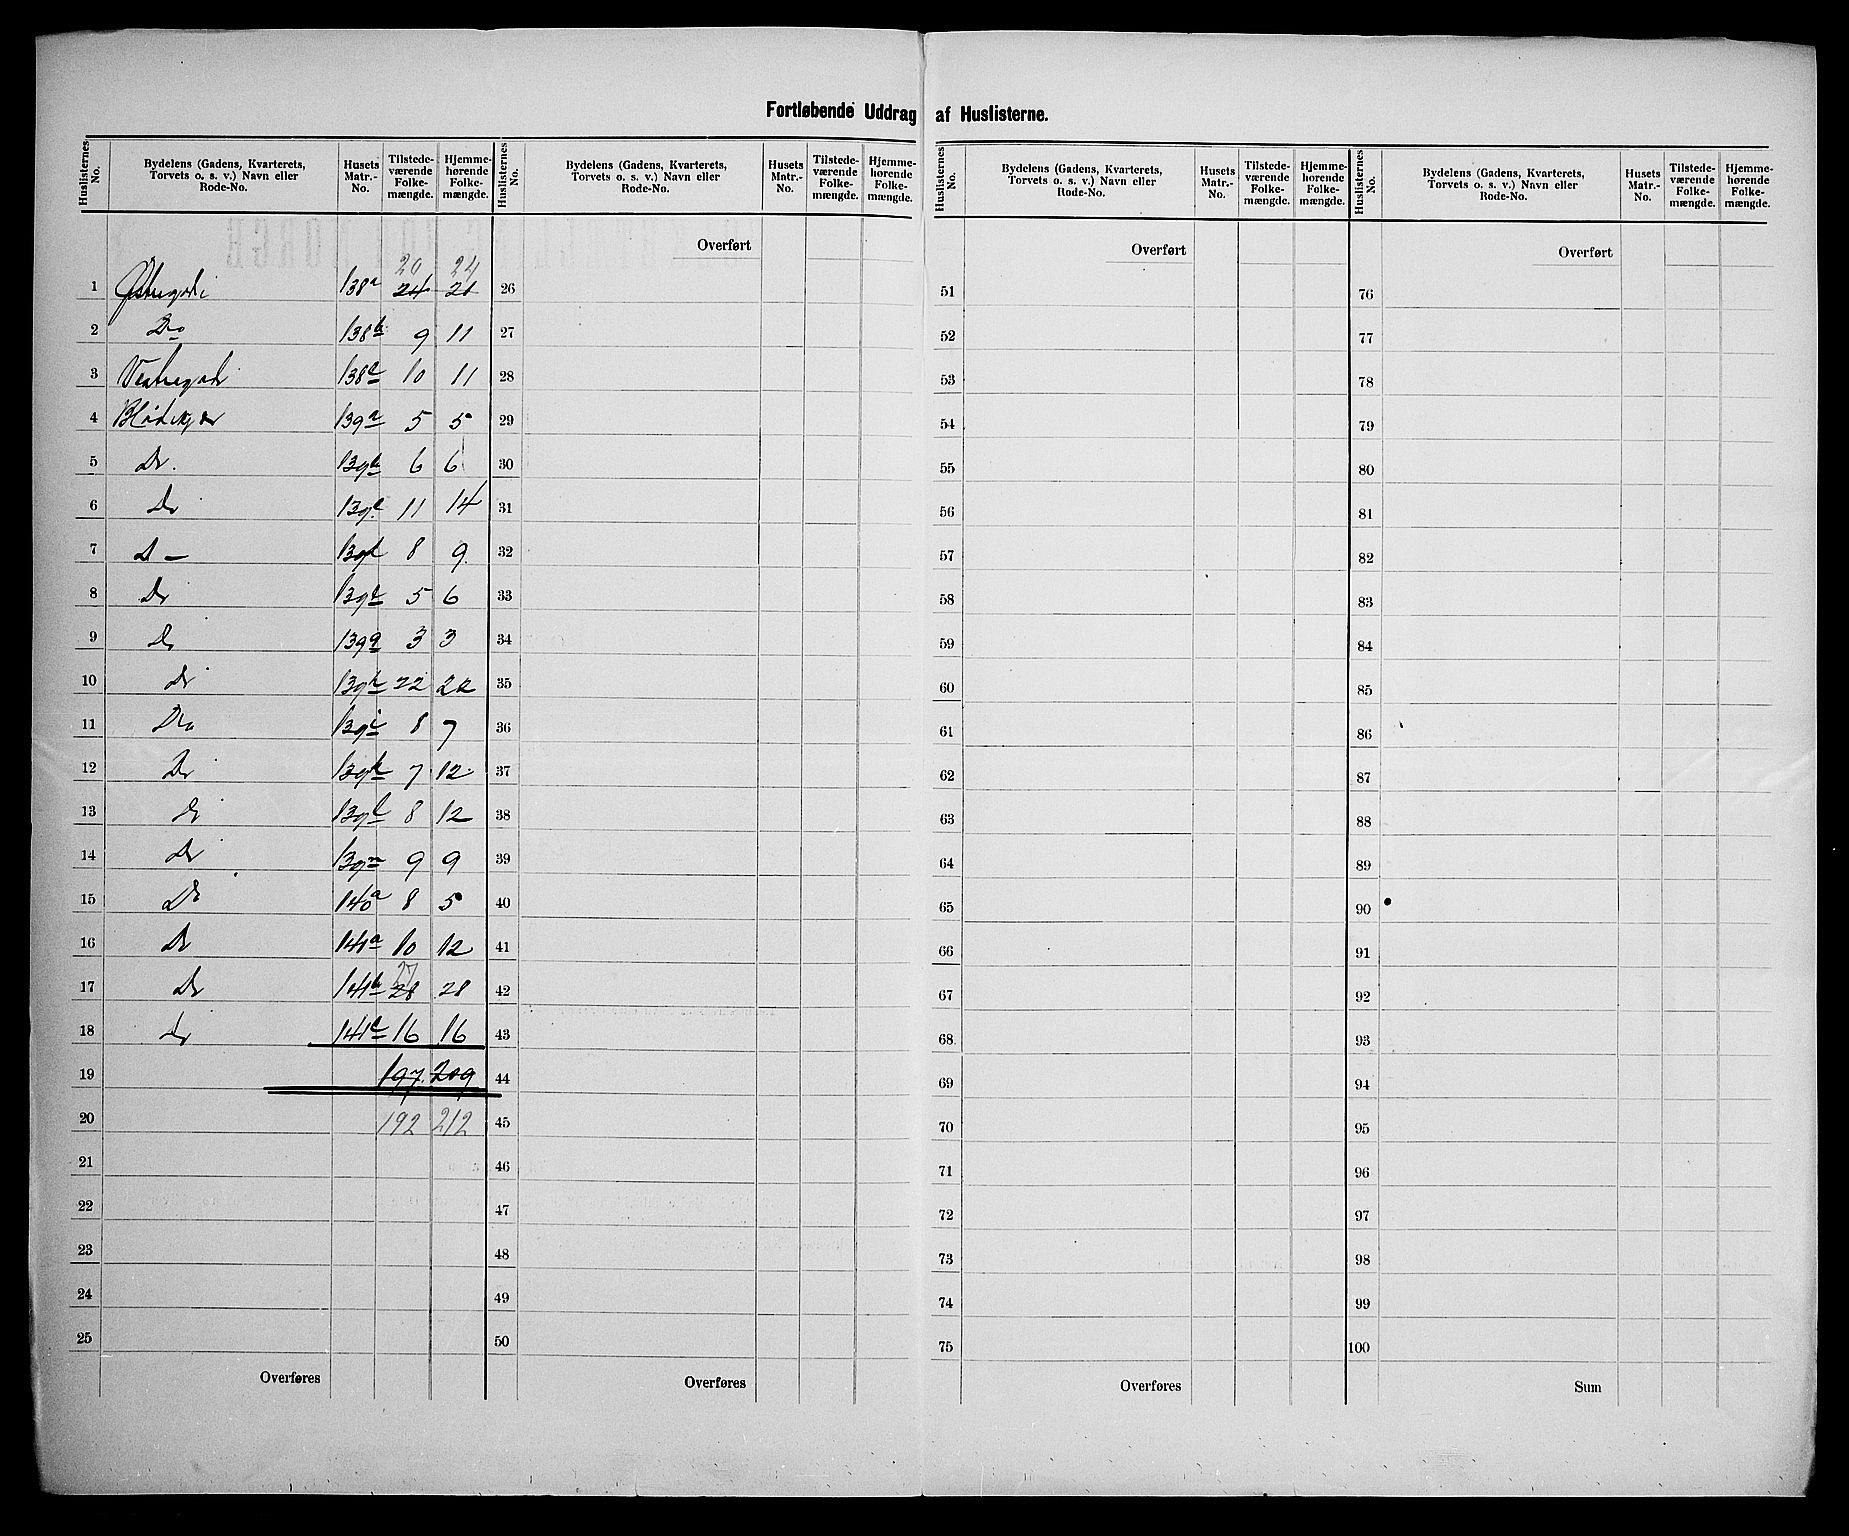 Fortløbende Uddrag af Huslisterne.
Huslisternes No. Bydelens (Gadens, Kvarterets, Torvets o. s. v.) Navn eller Rode-No. Husets Matr.-No. Tilstedeværende Folkemængde. Hjemmehørende Folkemængde.
Huslisternes No. Bydelens (Gadens, Kvarterets, Torvets o. s. v.) Navn eller Rode-No. Husets Matr.-No. Tilstedeværende Folkemængde. Hjemmehørende Folkemængde.
Huslisternes No. Bydelens (Gadens, Kvarterets, Torvets o. s. v.) Navn eller Rode-No. Husets Matr.-No. Tilstedeværende Folkemængde. Hjemmehørende Folkemængde.
Huslisternes No. Bydelens (Gadens, Kvarterets, Torvets o. s. v.) Navn eller Rode-No. Husets Matr.-No. Tilstedeværende Folkemængde. Hjemmehørende Folkemængde.
Overført Overført Overført
20 24
1 Østregade 138a 24 26 51 76
2 Do 138b 9 11 27 52 77
3 Vestregade 138c 10 11 28 53 78
4 139a 5 5 29 54 79
5 Do 139b 6 6 30 55 80
6 Do 139c 11 14 31 56 81
7 D — 139d 8 9 32 57 82
8 Do 5 6 33 58 83
9 Do 139g 3 3 34 59 84
10 Do 139h 22 22 35 60 85
11 Do 139i 8 7 36 61 86
12 Do 139k 7 12 37 62 87
13 Do 139l 8 12 38 63 88
14 Do 139m 9 9 39 64 89
15 Do 140a 8 5 40 65 90
16 Do 141a 10 12 41 66 91
27
17 Do 141b 28 28 42 67 92
18 Do 141c 16 16 43 68 93
19 197 209 44 69 94
20 192 212 45 70 95
21 46 71 96
22 47 72 97
23 48 73 98
24 49 74 99
25 50 75 100
Overføres Overføres Overføres Sum